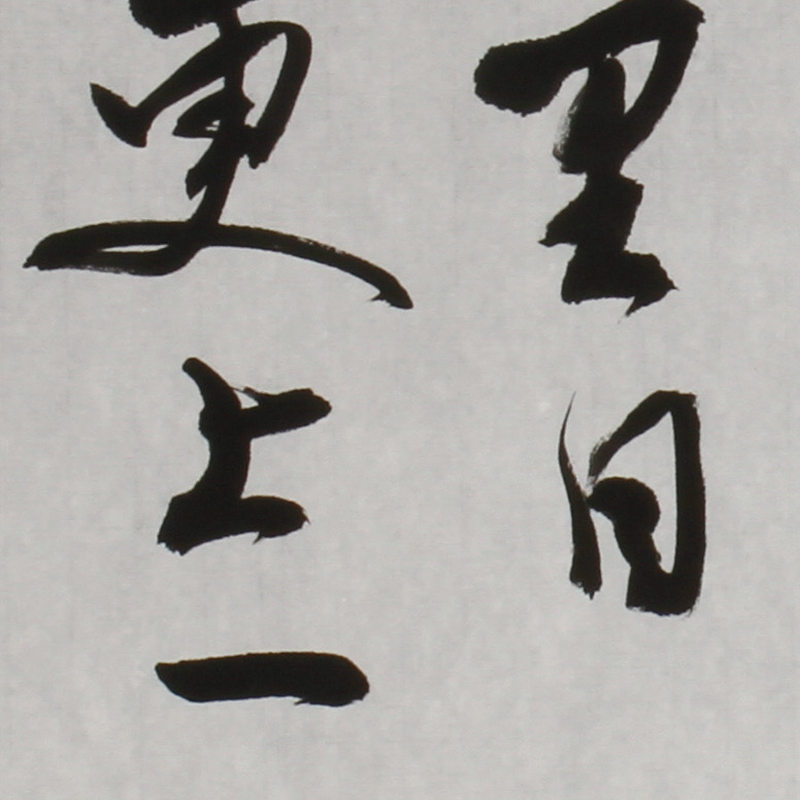 里目
更上一